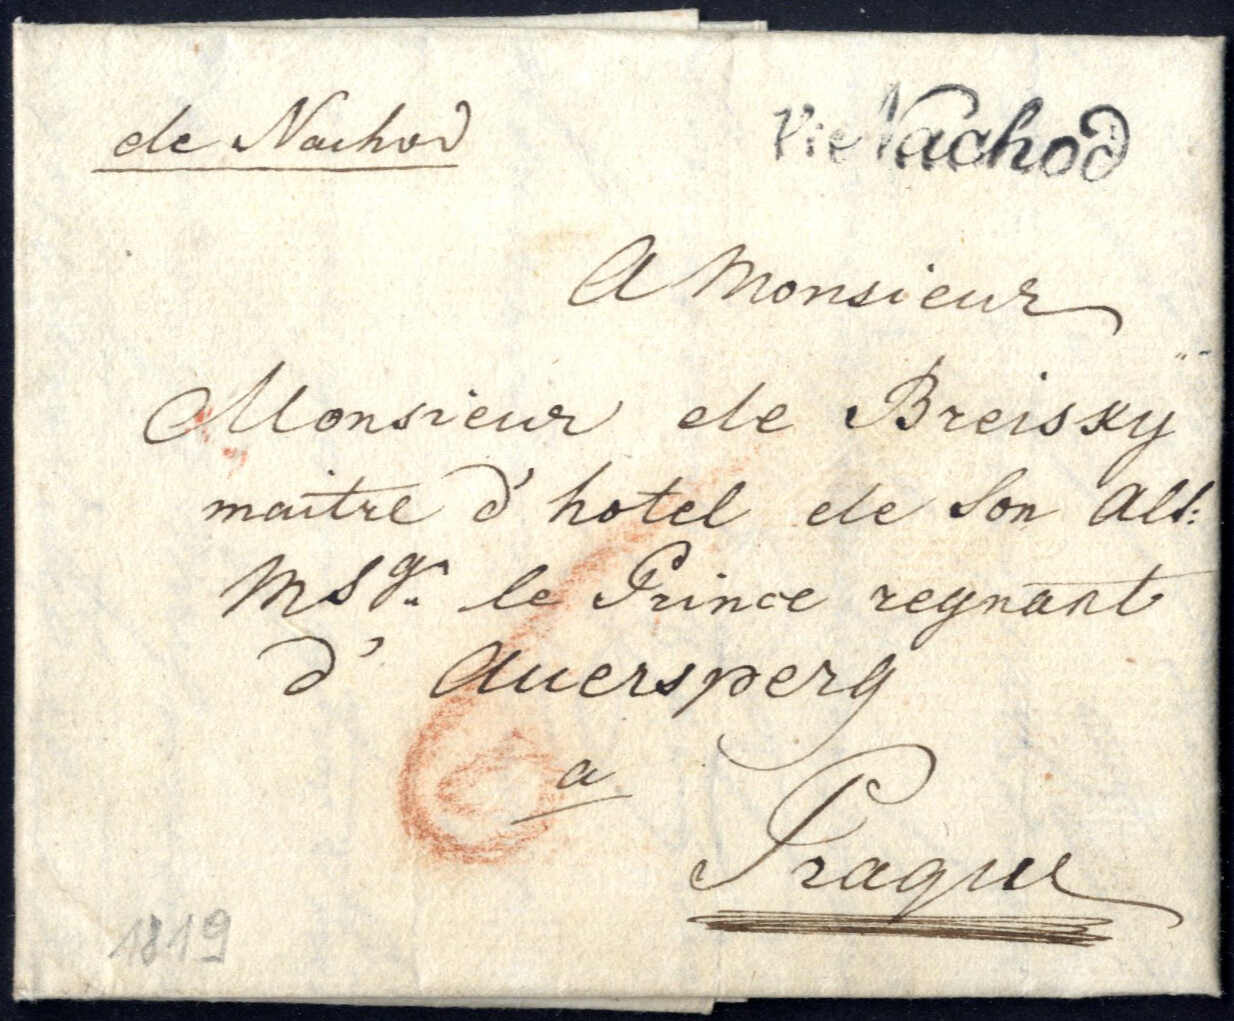 de Nachod
V: e Nachod
A Monsieur
Monsieur de Breisky
maitre d'hotel de Son Als:
Msgr. le Prince regnant
d'Auersperg
a
Prague
6
1819